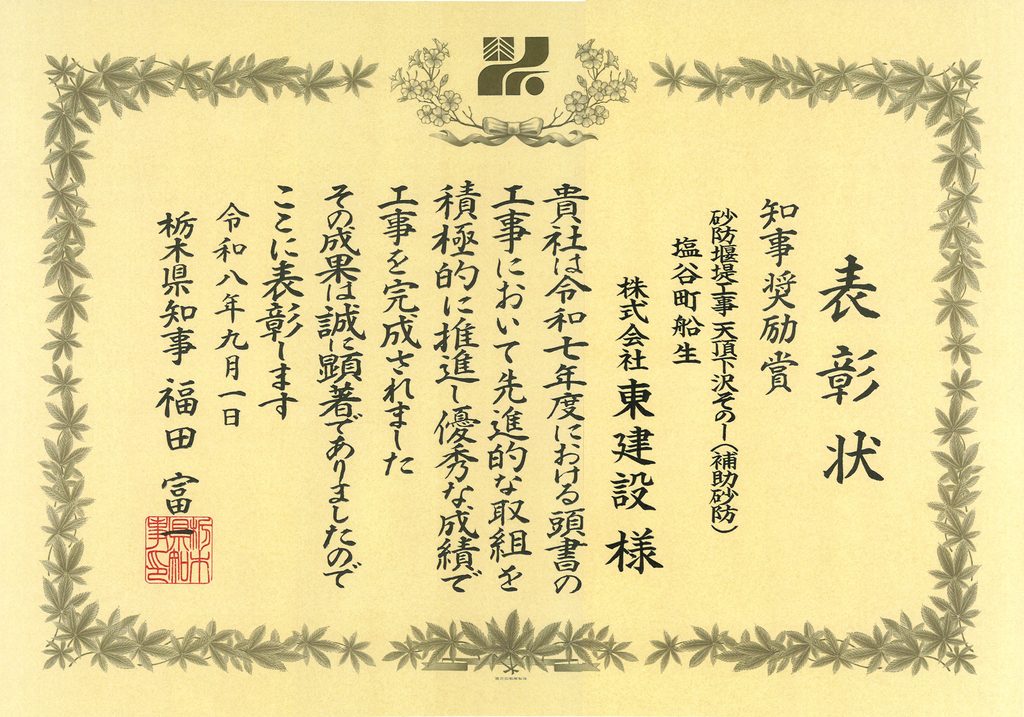 表彰状
知事奨励賞
砂防堰堤工事 天頂下沢その一（補助砂防）
塩谷町船生
株式会社 東建設 様
貴社は令和七年度における頭書の
工事において先進的な取組を
積極的に推進し優秀な成績で
工事を完成されました
その成果は誠に顕著でありましたので
ここに表彰します
令和八年九月一日
栃木県知事 福田 富一
栃木県知事印